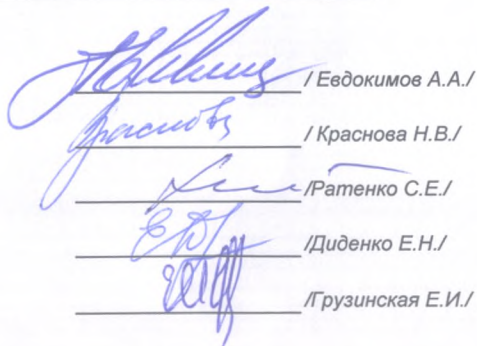 / Евдокимов А.А./
/ Краснова Н.В./
/Ратенко С.Е./
/Диденко Е.Н./
/Грузинская Е.И./